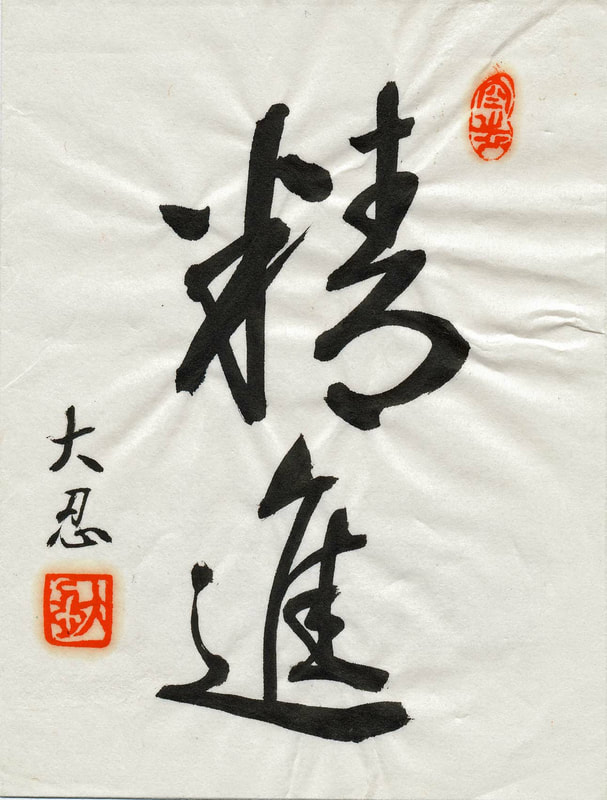 精進
大忍